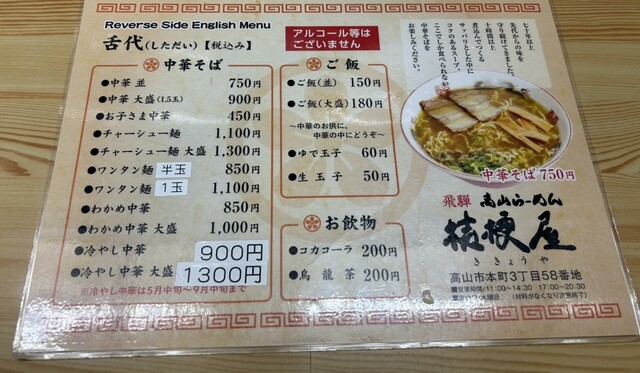 Reverse Side English Menu
舌代(しただい)【税込み】
アルコール等は
ございません
中華そば
●中華 並 750円
●中華 大盛(1.5玉) 900円
●お子さま中華 450円
●チャーシュー麺 1,100円
●チャーシュー麺 大盛 1,300円
●ワンタン麺 半玉 850円
●ワンタン麺 1玉 1,100円
●わかめ中華 850円
●わかめ中華 大盛 1,000円
●冷やし中華 900円
●冷やし中華 大盛 1300円
※冷やし中華は5月中旬〜9月中旬まで
ご飯
●ご飯(並) 150円
●ご飯(大盛) 180円
〜中華のお供に、
中華の中にどうぞ〜
●ゆで玉子 60円
●生玉子 50円
お飲物
●コカコーラ 200円
●烏龍茶 200円
七十年以上
先代からの味を
守り続けてきました。
十時間以上
煮込んでつくる
サッパリとした中に
コクのあるスープ。
ここでしか食べられない
中華そばを
お楽しみください。
中華そば 750円
飛騨 高山らーめん
桔梗屋
ききょうや
高山市本町3丁目58番地
営業時間/11:00〜14:30 17:00〜20:30
火曜日 (材料がなくなり次第終了)